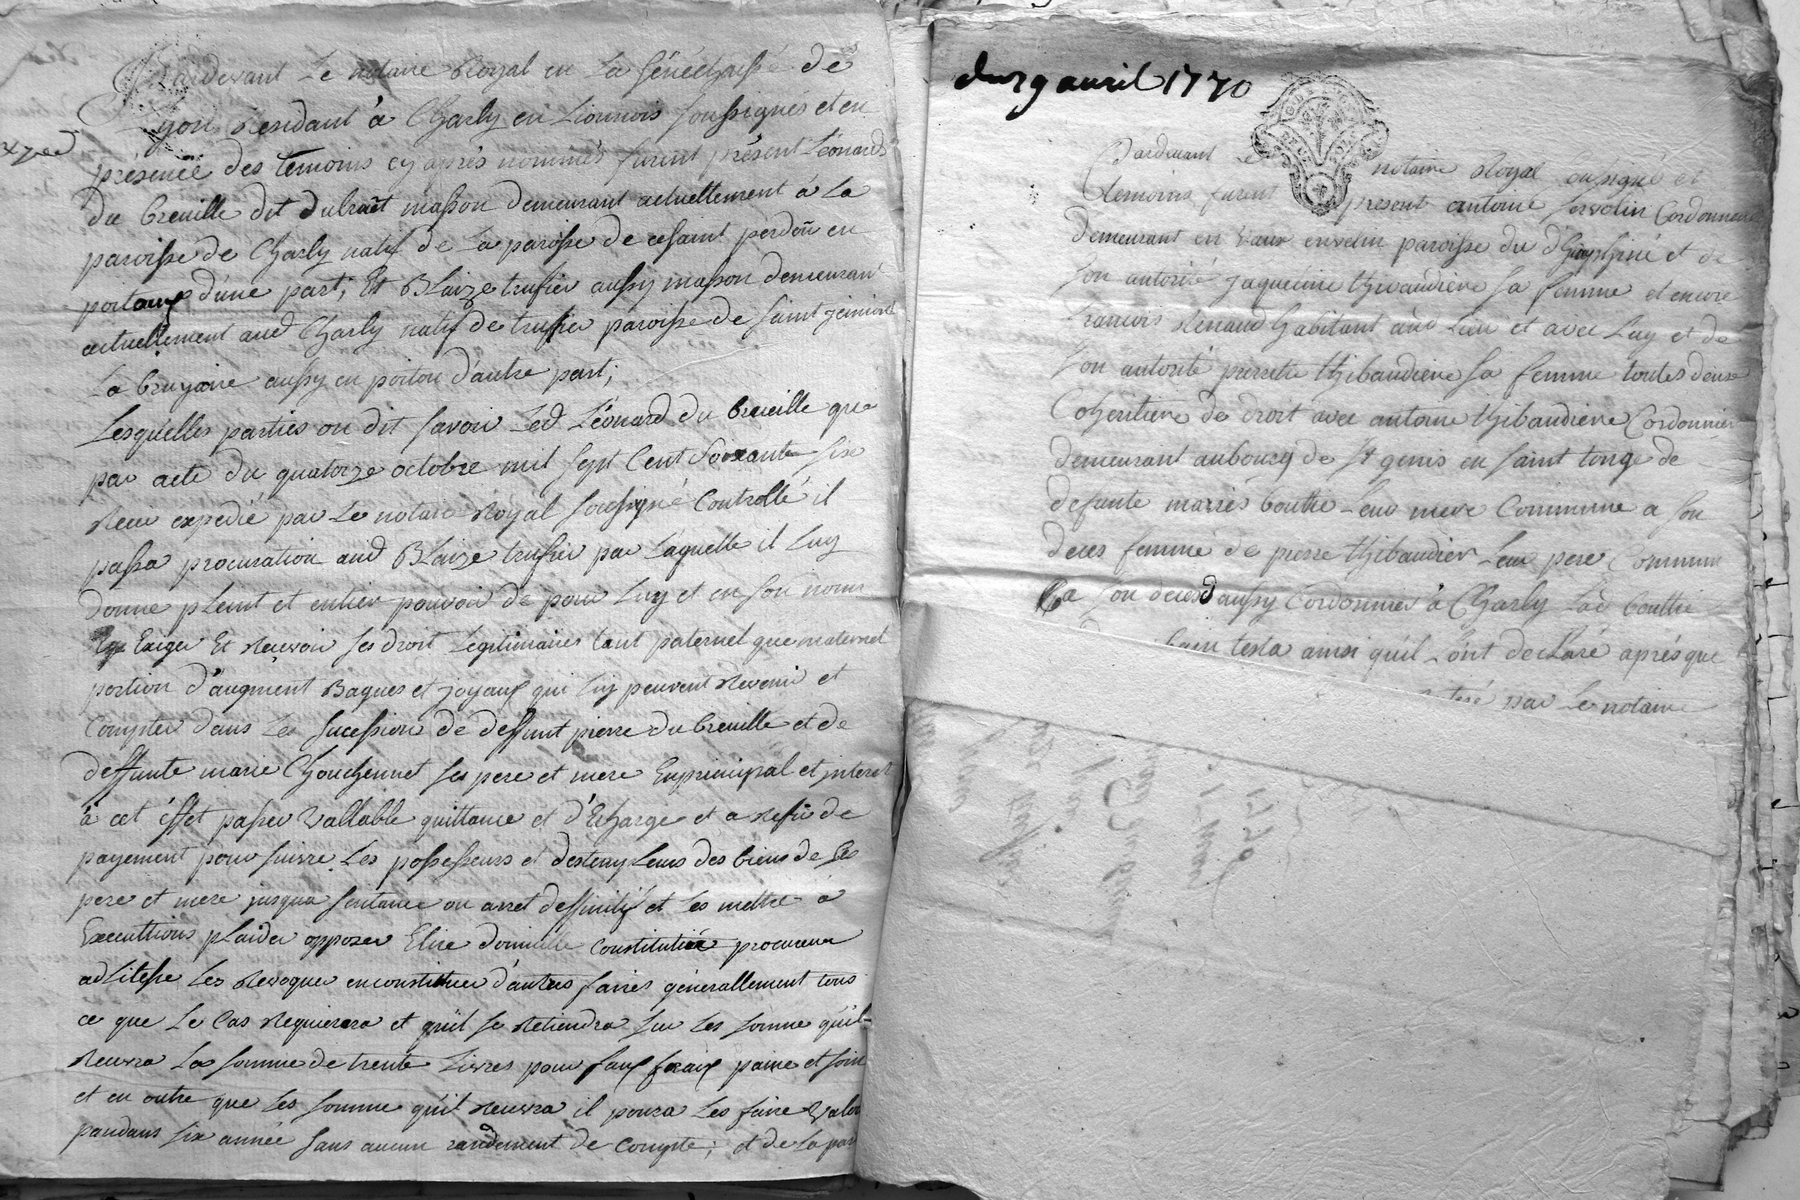 Pardevant Le notaire Royal en La sénéchaussé de
Lyon Résidant à Charly en Lionnois soussignés et en
présence des témoins cy après nommés furent présent Léonard
du breuille dit dubruêt masson demeurant actuellement à La
paroisse de Charly natif de La paroisse de cesaint perdoũ en
poitoux d'une part; Et BLaize trufier aussy masson demeurant
actuellement aud Charly natif de trufier paroisse de saint
La bruyaire aussy en poitou d'autre part;
Lesquelles parties on dit savoir Led Léonard du breuille que
par acte du quatorze octobre mil sept Cent Soixante six
Receu expedié par Le notaire Royal soussigné Controllé il
passa procuration aud BLaize trufier par Laquelle il Luy
donne pleint et entier pouvoir de pour Luy et en son nom
Exiger Et Recevoir ses droit Légitimaires tant paternel que maternel
portion d'augment Bagues et joyaux qui luy peuvent Revenir et
Compter dans Les sucession de deffunt pierre du breuille et de
deffunte marie Chouchennet ses pere et mere En principal et interet
à cet éffet passer vallable quittance et d'Echarge et a Refu de
payement poursuivre Les possesseurs et destenteurs des biens de ses
pere et mere jusqua sentance ou arret deffinitif et Les mettre à
Executtions plaider opposer Elire domicille constitutiér procureur
adLitesse Les Revoquer en constituer d'autres faires générallement tous
ce que Le Cas Requierera et qu'il se Retiendra sur Les somme qu'il
Reuvra La somme de trente Livres pour faux fraix paine et soin
et en outre que Les somme qu'il Reuvra il poura Les faire valoir
pandans six année sans aucun randement de compte; et de La par
du 29 avril 1770
Pardevant Le notaire Royal soussigné et
témoins furent présent antoine servelin Cordonnier
demeurant en vaux envelin paroisse du d'hauphiné et de
son autorité jaquemine thibaudiere sa femme et encore
francois Renaud habitant aud Lieu et avec Luy et de
son autorité pierrette thibaudiere sa femme toutes deux
Cohéritiere de droit avec antoine thibaudiere Cordonnier
demeurant aubourg de st genis en saint tonge de
defunte bouthe Leur mere Commune a son
deces femme de pierre thibaudier Leur pere Commun
a son deces aussy Cordonnier à Charly Lad bouthe
testa ainsi quil L'ont declaré aprés que
par Le notaire